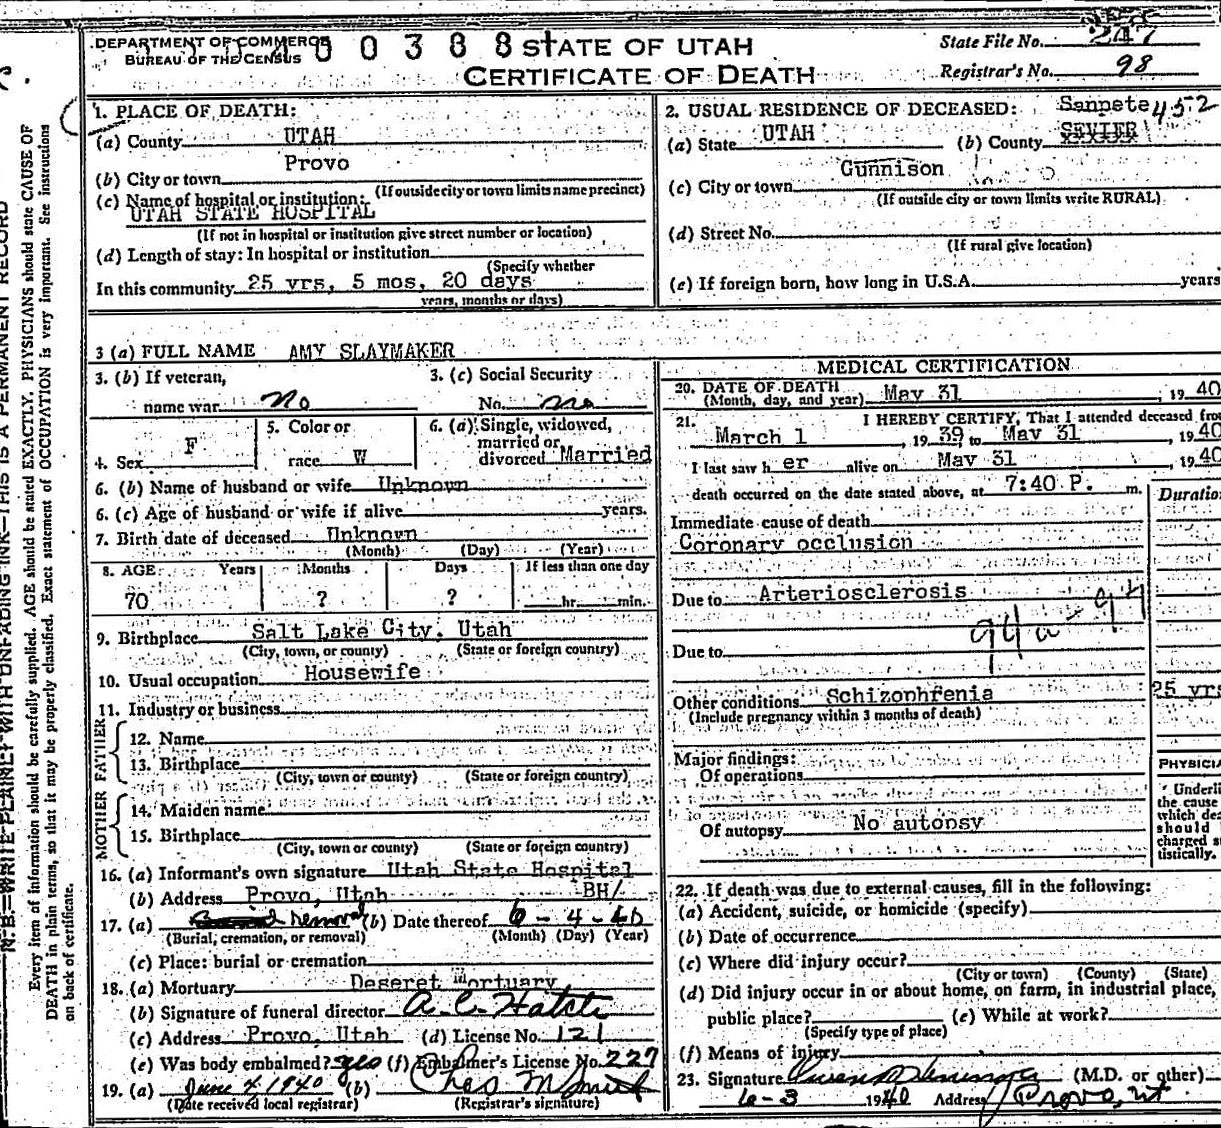 DEPARTMENT OF COMMERCE
BUREAU OF THE CENSUS
0 0 3 8 8
STATE OF UTAH
CERTIFICATE OF DEATH
State File No. 247
Registrar's No. 98
N.B.—WRITE PLAINLY WITH UNFADING INK—THIS IS A PERMANENT RECORD
Every item of information should be carefully supplied. AGE should be stated EXACTLY. PHYSICIANS should state CAUSE OF
DEATH in plain terms, so that it may be properly classified. Exact statement of OCCUPATION is very important. See instructions
on back of certificate.
1. PLACE OF DEATH:
(a) County UTAH
Provo
(b) City or town
(If outside city or town limits name precinct)
(c) Name of hospital or institution:
UTAH STATE HOSPITAL
(If not in hospital or institution give street number or location)
(d) Length of stay: In hospital or institution
(Specify whether
In this community 25 yrs, 5 mos, 20 days
years, months or days)
2. USUAL RESIDENCE OF DECEASED: Sanpete 452
(a) State UTAH (b) County SEVIER
Gunnison
(c) City or town
(If outside city or town limits write RURAL)
(d) Street No.
(If rural give location)
(e) If foreign born, how long in U.S.A. years
3 (a) FULL NAME AMY SLAYMAKER
3. (b) If veteran,
name war No
3. (c) Social Security
No. no
4. Sex F
5. Color or
race W
6. (a) Single, widowed,
married or
divorced Married
6. (b) Name of husband or wife Unknown
6. (c) Age of husband or wife if alive years.
7. Birth date of deceased Unknown
(Month) (Day) (Year)
8. AGE: Years Months Days If less than one day
70 ? ? hr. min.
9. Birthplace Salt Lake City, Utah
(City, town, or county) (State or foreign country)
10. Usual occupation Housewife
11. Industry or business
FATHER
12. Name
13. Birthplace
(City, town or county) (State or foreign country)
MOTHER
14. Maiden name
15. Birthplace
(City, town or county) (State or foreign country)
16. (a) Informant's own signature Utah State Hospital
(b) Address Provo, Utah BH/
17. (a) Removal (b) Date thereof 6-4-40
(Burial, cremation, or removal) (Month) (Day) (Year)
(c) Place: burial or cremation
18. (a) Mortuary Deseret Mortuary
(b) Signature of funeral director A. C. Hatch
(c) Address Provo, Utah (d) License No. 121
(e) Was body embalmed? yes (f) Embalmer's License No. 227
19. (a) June 4, 1940 (b) Chas M Smith
(Date received local registrar) (Registrar's signature)
MEDICAL CERTIFICATION
20. DATE OF DEATH
(Month, day, and year) May 31, 1940
21. I HEREBY CERTIFY, That I attended deceased from
March 1, 1939 to May 31, 1940
I last saw h er alive on May 31, 1940
death occurred on the date stated above, at 7:40 P. m.
Duration
Immediate cause of death
Coronary occlusion
Due to Arteriosclerosis
94a-97
Due to
Other conditions Schizophrenia 25 yrs
(Include pregnancy within 3 months of death)
Major findings:
Of operations
Of autopsy No autopsy
PHYSICIA
Underli
the cause
which dea
should
charged s
tistically.
22. If death was due to external causes, fill in the following:
(a) Accident, suicide, or homicide (specify)
(b) Date of occurrence
(c) Where did injury occur?
(City or town) (County) (State)
(d) Did injury occur in or about home, on farm, in industrial place,
public place? (e) While at work?
(Specify type of place)
(f) Means of injury
23. Signature (M.D. or other)
6-3 1940 Address Provo, Ut